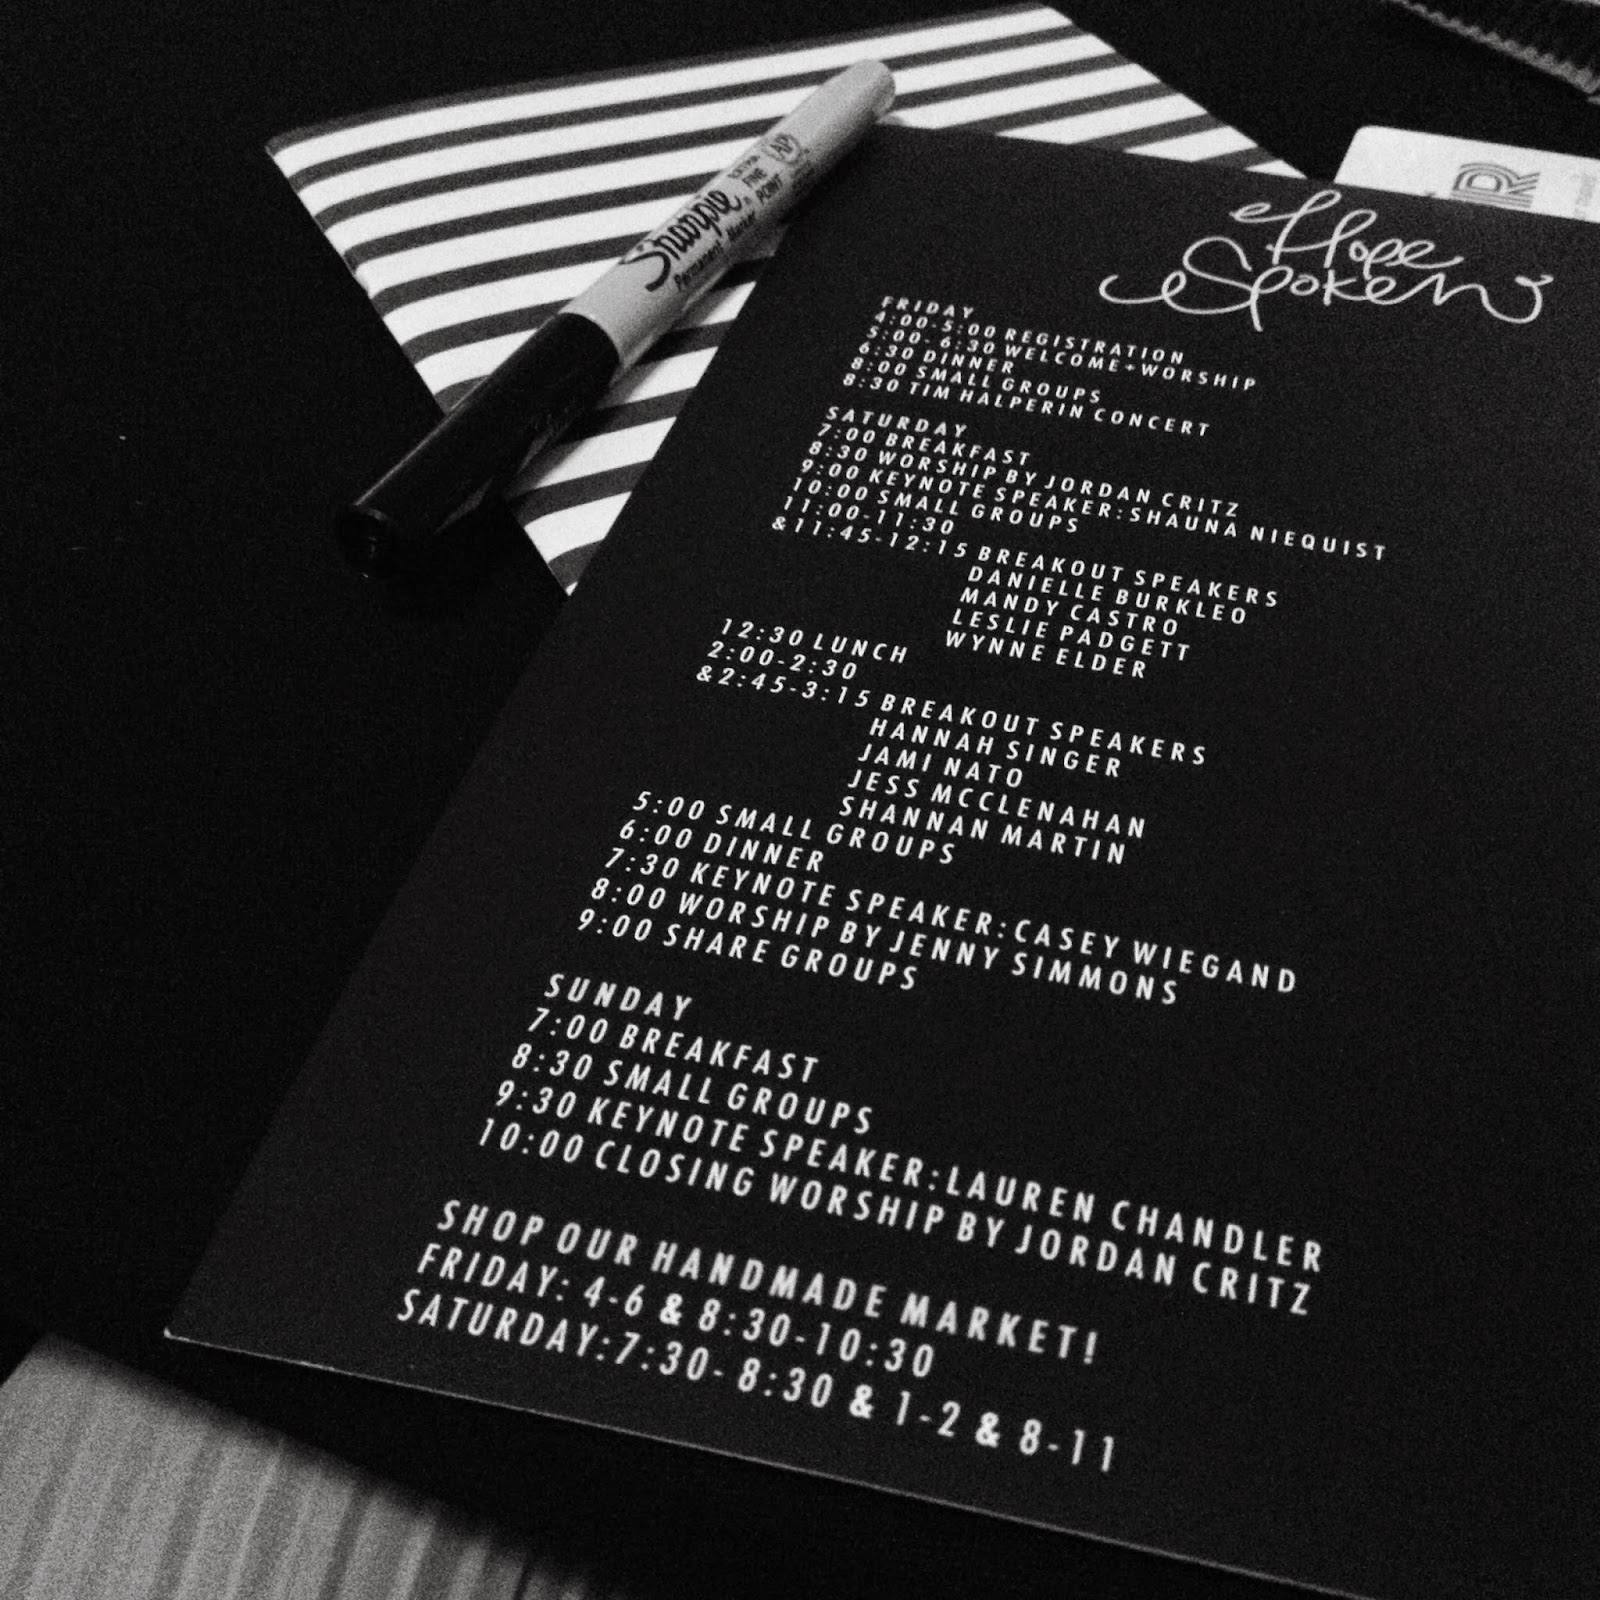 Sharpie
Permanent Marker
EXTRA FINE POINT
AP
R
Hope
Spoken
FRIDAY
4:00-5:00 REGISTRATION
5:00-6:30 WELCOME+WORSHIP
6:30 DINNER
8:00 SMALL GROUPS
8:30 TIM HALPERIN CONCERT
SATURDAY
7:00 BREAKFAST
8:30 WORSHIP BY JORDAN CRITZ
9:00 KEYNOTE SPEAKER: SHAUNA NIEQUIST
10:00 SMALL GROUPS
11:00-11:30
&11:45-12:15 BREAKOUT SPEAKERS
DANIELLE BURKLEO
MANDY CASTRO
LESLIE PADGETT
WYNNE ELDER
12:30 LUNCH
2:00-2:30
&2:45-3:15 BREAKOUT SPEAKERS
HANNAH SINGER
JAMI NATO
JESS MCCLENAHAN
SHANNAN MARTIN
5:00 SMALL GROUPS
6:00 DINNER
7:30 KEYNOTE SPEAKER: CASEY WIEGAND
8:00 WORSHIP BY JENNY SIMMONS
9:00 SHARE GROUPS
SUNDAY
7:00 BREAKFAST
8:30 SMALL GROUPS
9:30 KEYNOTE SPEAKER: LAUREN CHANDLER
10:00 CLOSING WORSHIP BY JORDAN CRITZ
SHOP OUR HANDMADE MARKET!
FRIDAY: 4-6 & 8:30-10:30
SATURDAY: 7:30-8:30 & 1-2 & 8-11